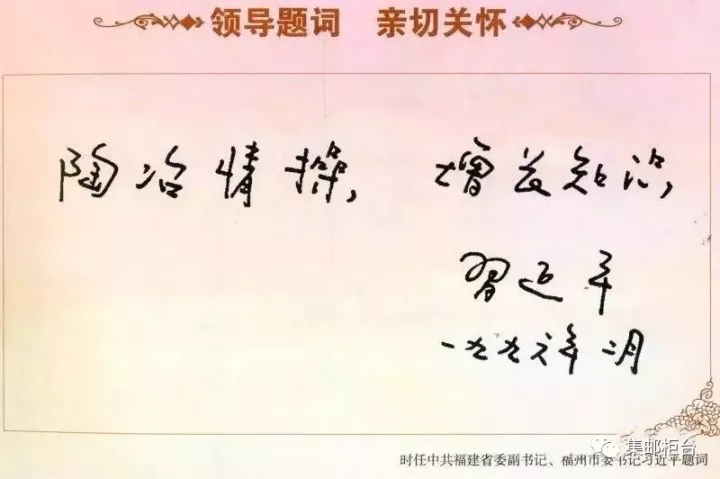 领导题词 亲切关怀
陶冶情操, 增长知识,
习近平
一九九六年二月
时任中共福建省委副书记、福州市委书记习近平题词
集邮柜台